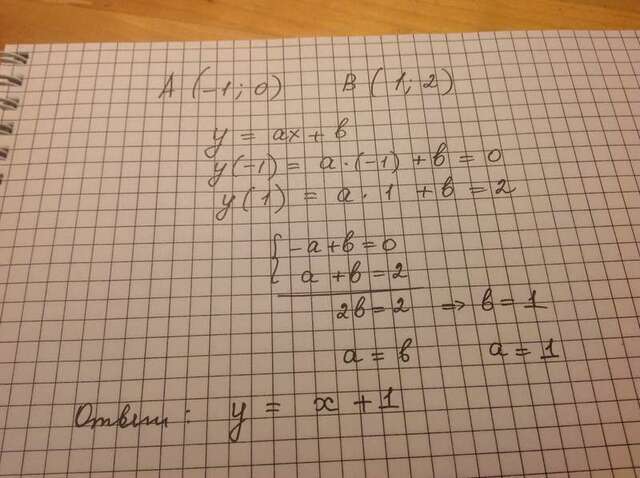 A (-1; 0) B (1; 2)
y = ax + b
y(-1) = a·(-1) + b = 0
y(1) = a·1 + b = 2
{ -a + b = 0
a + b = 2
2b = 2 => b = 1
a = b a = 1
Ответ: y = x + 1